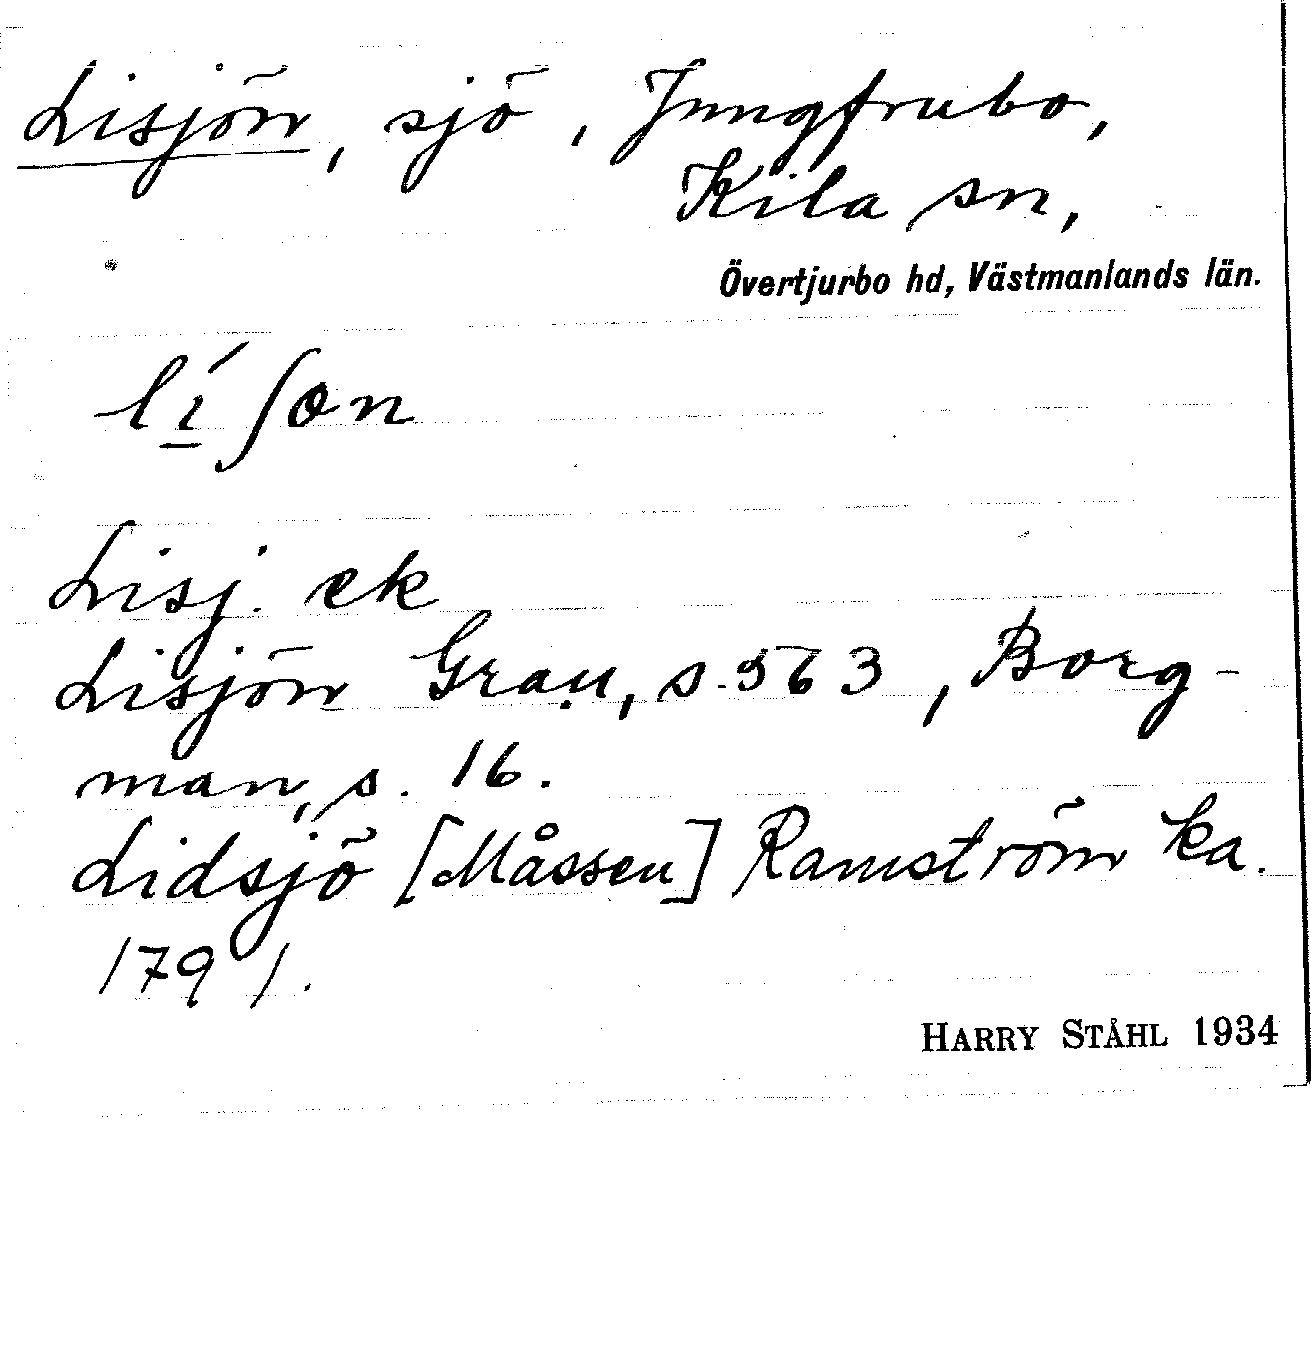 Lisjön, sjö, Jungfrubo,
Kila sn,
Övertjurbo hd, Västmanlands län.
lí̱ʃon
Lisj. ek
Lisjön Grau, s. 563, Borg-
man, s. 16.
Lidsjö [Måssen] Ramström ka.
1791.
HARRY STÅHL 1934